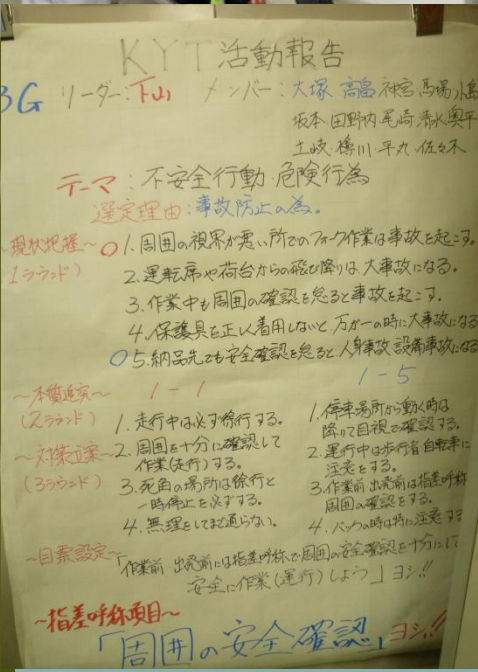 KYT活動報告
3G リーダー:下山 メンバー:大塚 高畠 神宮 馬場 小島
坂本・田野内 尾崎 清水 奥平
土岐・樽川・平丸・佐々木
テーマ:不安全行動・危険行為
選定理由:事故防止の為。
現状把握~
1ラウンド)
○1.周囲の視界が悪い所でのフォーク作業は事故を起こす。
2.運転席や荷台からの飛び降りは大事故になる。
3.作業中も周囲の確認を怠ると事故を起こす。
4.保護具を正しく着用しないと、万が一の時に大事故になる
○5.納品先でも安全確認を怠ると人身事故、設備事故になる
~本質追究~
(2ラウンド)
~対策立案~
(3ラウンド)
1-1
1.走行中は必ず徐行する。
2.周囲を十分に確認して
作業(走行)する。
3.死角の場所は徐行と
一時停止を必ずする。
4.無理をしてまで通らない。
1-5
1.停車場所から動く時は
降りて目視で確認する。
2.運行中は歩行者自転車に
注意をする。
3.作業前 出発前は指差呼称
周囲の確認をする。
4.バックの時は特に注意する
~目標設定~
「作業前 出発前には指差呼称で周囲の安全確認を十分にして
安全に作業(運行)しよう」ヨシ!!
~指差呼称項目~
「周囲の安全確認」ヨシ!!